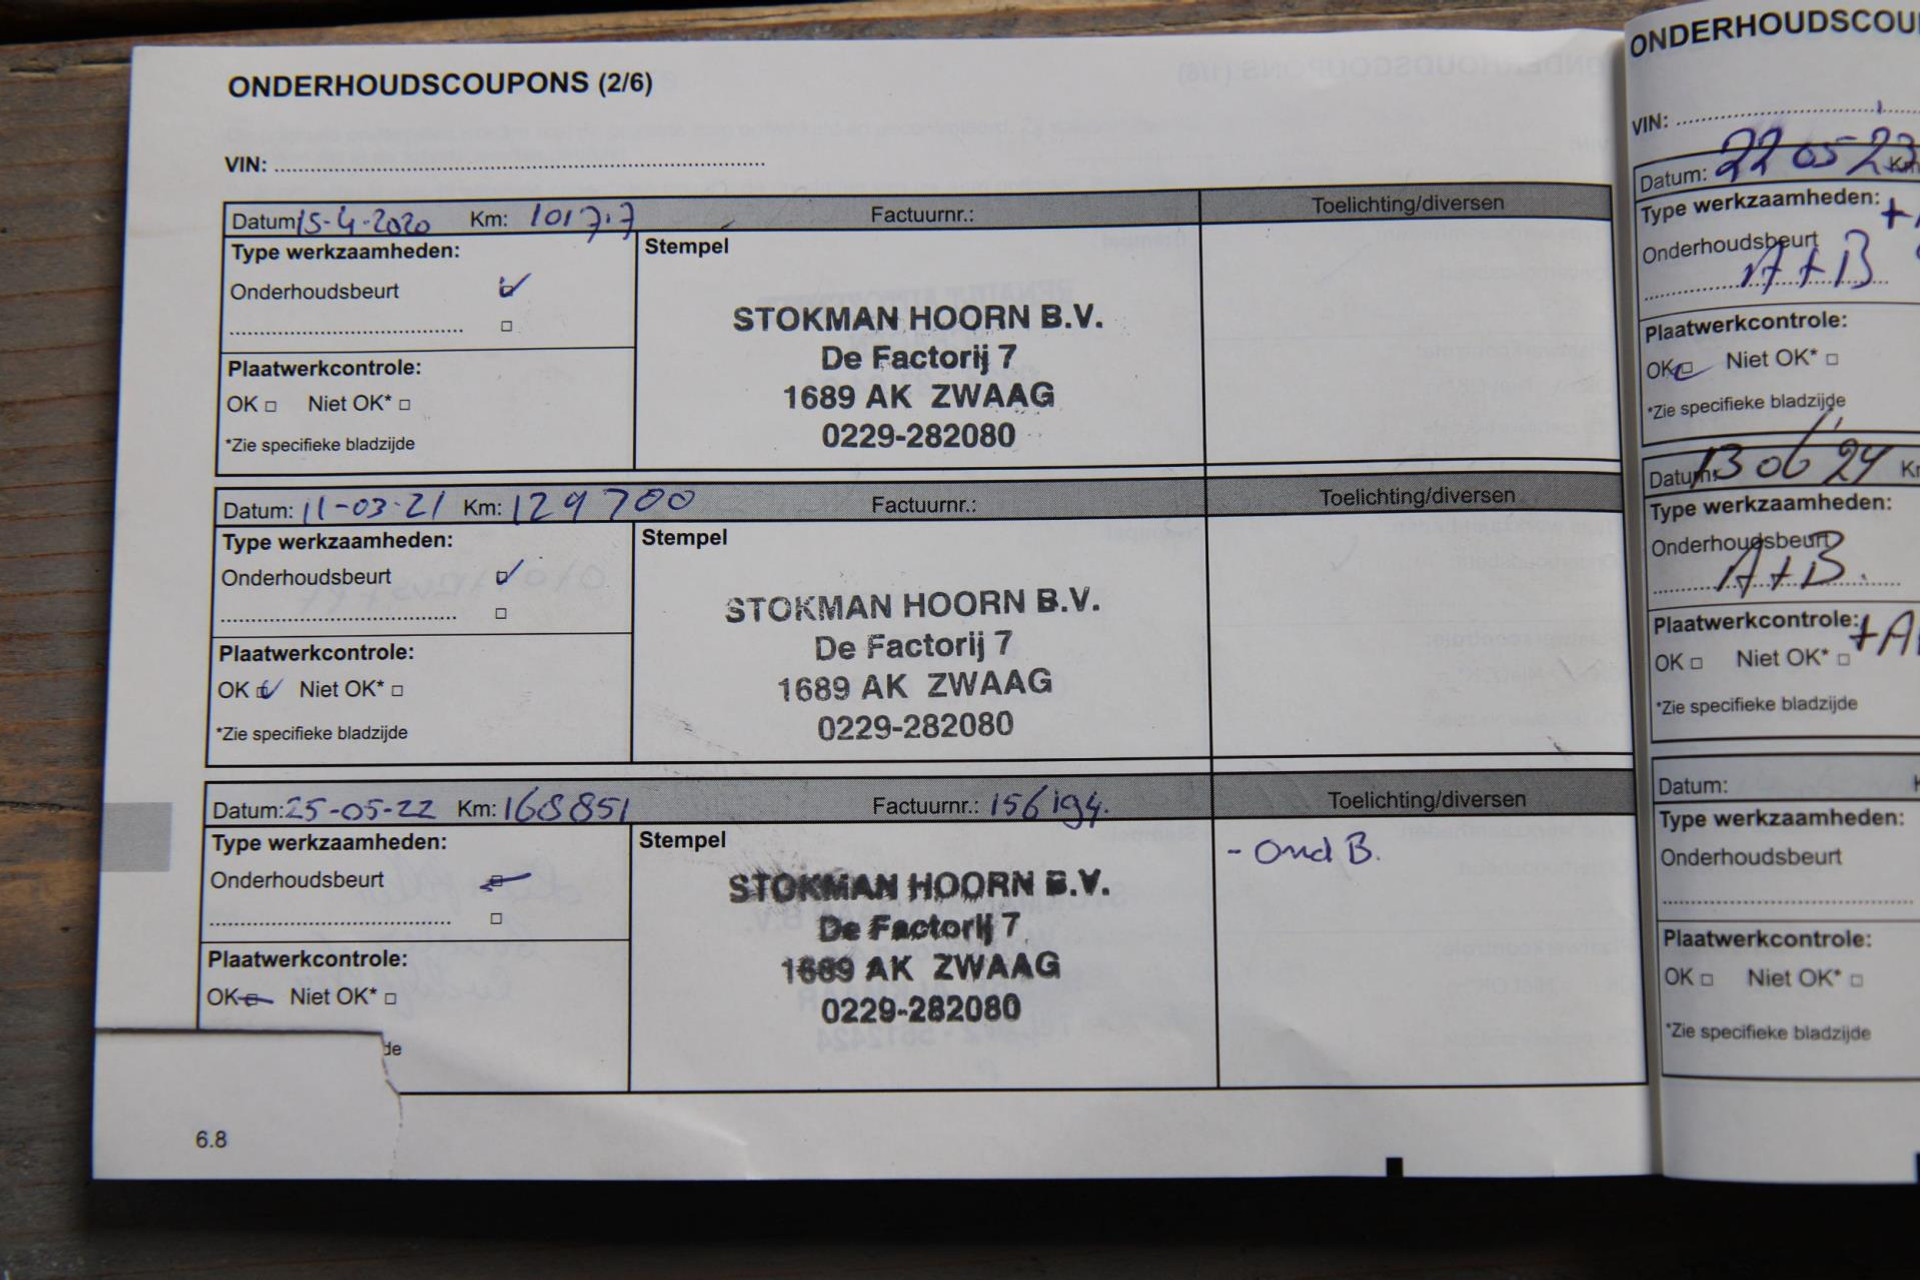 ONDERHOUDSCOUPONS (2/6)
VIN:
Datum: 15-4-2020 Km: 101717 Factuurnr.: Toelichting/diversen
Type werkzaamheden:
Stempel
Onderhoudsbeurt
STOKMAN HOORN B.V.
De Factorij 7
1689 AK ZWAAG
0229-282080
Plaatwerkcontrole:
OK Niet OK*
*Zie specifieke bladzijde
Datum: 11-03-21 Km: 129700 Factuurnr.: Toelichting/diversen
Type werkzaamheden:
Stempel
Onderhoudsbeurt
STOKMAN HOORN B.V.
De Factorij 7
1689 AK ZWAAG
0229-282080
Plaatwerkcontrole:
OK Niet OK*
*Zie specifieke bladzijde
Datum: 25-05-22 Km: 168851 Factuurnr.: 156194. Toelichting/diversen
Type werkzaamheden:
Stempel
- Ond B.
Onderhoudsbeurt
STOKMAN HOORN B.V.
De Factorij 7
1689 AK ZWAAG
0229-282080
Plaatwerkcontrole:
OK Niet OK*
de
6.8
ONDERHOUDSCOU
VIN:
Datum: 22 05 23 Km
Type werkzaamheden:
Onderhoudsbeurt
A+B
Plaatwerkcontrole:
OK Niet OK*
*Zie specifieke bladzijde
Datum: 13 06 24
Type werkzaamheden:
Onderhoudsbeurt
A+B.
Plaatwerkcontrole:
OK Niet OK*
*Zie specifieke bladzijde
Datum:
Type werkzaamheden:
Onderhoudsbeurt
Plaatwerkcontrole:
OK Niet OK*
*Zie specifieke bladzijde